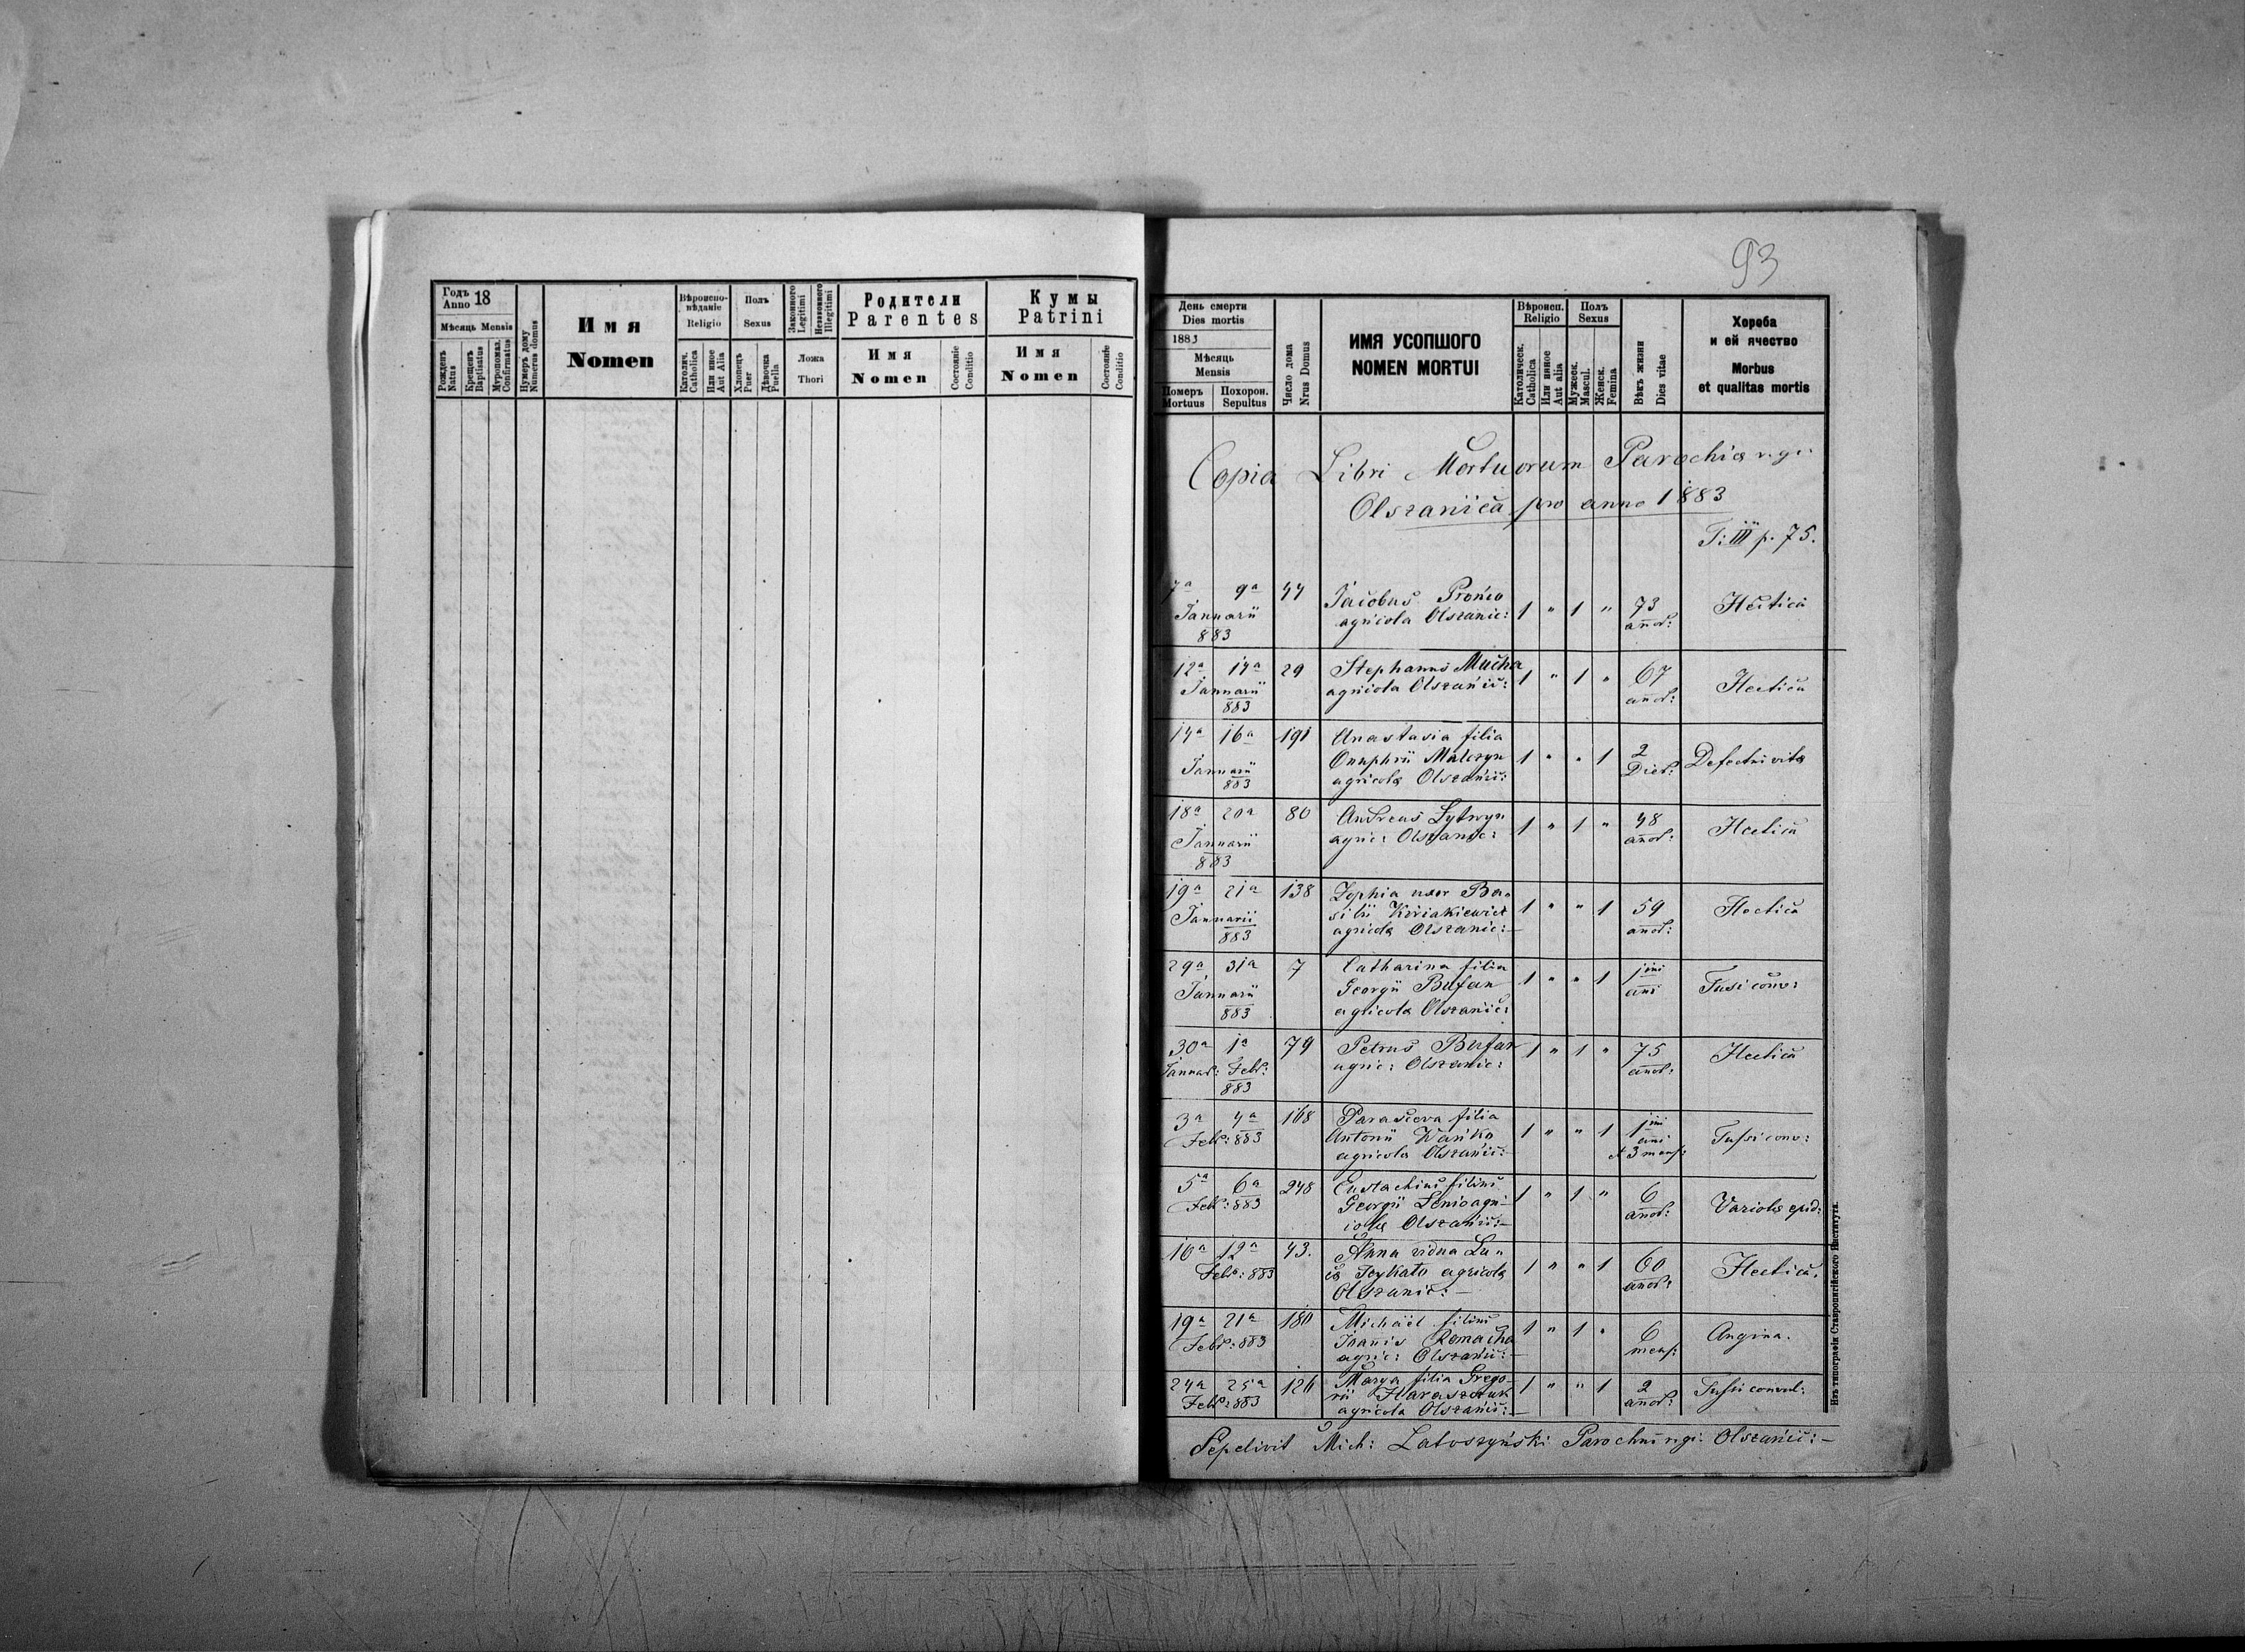 93
Годъ
Anno 18
Мѣсяць Mensis
Рожденъ
Natus
Крещенъ
Baptisatus
Мѵропомаз.
Confirmatus
Нумеръ дому
Numerus domus
Имя
Nomen
Вѣроиспо-
вѣданіе
Religio
Католич.
Catholica
Или иное
Aut Alia
Полъ
Sexus
Хлопець
Puer
Дѣвочка
Puella
Законного
Legitimi
Незаконного
Illegitimi
Ложа
Thori
Родители
Parentes
Имя
Nomen
Состояніе
Conditio
Кумы
Patrini
Имя
Nomen
Состояніе
Conditio
День смерти
Dies mortis
1883
Мѣсяць
Mensis
Померъ
Mortuus
Похорон.
Sepultus
Число дома
Nrus Domus
ИМЯ УСОПШОГО
NOMEN MORTUI
Вѣроисп.
Religio
Католическ.
Catholica
Или инное
Aut alia
Полъ
Sexus
Мужеск.
Mascul.
Женск.
Femina
Вѣкъ жизни
Dies vitae
Хороба
и ей ячество
Morbus
et qualitas mortis
Copia Libri Mortuorum Parochiæ r. g.:
Olszanica pro anno 1883
T: III p. 75.
7a 9a 44 Jacobus Prońco 1 " 1 " 73 Hectica
Januarii agricola Olszanic: anor:
883
12a 14a 29 Stephanus Mucha 1 " 1 " 67 Hectica
Januarii agricola Olszanic: anor:
883
14a 16a 191 Anastasia filia
Onuphrii Malczyn 1 " " 1 2 Defectui vitæ
Januarii agricolæ Olszanic: Dier:
883
18a 20a 80 Andreas Lytwyn 1 " 1 " 48 Hectica
Januarii agric: Olszanic: anor:
883
19a 21a 138 Zophia uxor Ba-
Januarii silii Kiriakiewicz 1 " " 1 59 Hectica
883 agricolæ Olszanic: anor:
29a 31a 7 Catharina filia
Januarii Georgii Bufan 1 " " 1 1ini ani Tusi conv:
883 agricolæ Olszanic:
30a 1a 79 Petrus Bufan 1 " 1 " 75 Hectica
Januar: Febr: agric: Olszanic: anor:
883
3a 4a 168 Parasceva filia
Febr: 883 Antonii Wańko 1 " " 1 1ini ani Tussi conv:
agricola Olszanic: et 3 mens:
5a 6a 248 Eustachius filius
Febr: 883 Georgii Senio agri- 1 " 1 " 6 Variolæ epid:
colæ Olszanic: anor:
10a 12a 43. Anna vidua Lu-
Febr: 883 cæ Seykato agricolæ 1 " " 1 60 Hectica.
Olszanic: anor:
19a 21a 180 Michael filius
Febr: 883 Joanis Romacha 1 " 1 " 6 Angina.
agric: Olszanic: mens:
24a 25a 126 Marya filia Grego-
Febr: 883 rii Haraszczuk 1 " " 1 2 Tussi convul:
agricola Olszanic: anor:
Sepelivit Mich: Latoszyński Parochus r. g. Olszanic:
Изъ типографіи Ставропигійского Института.